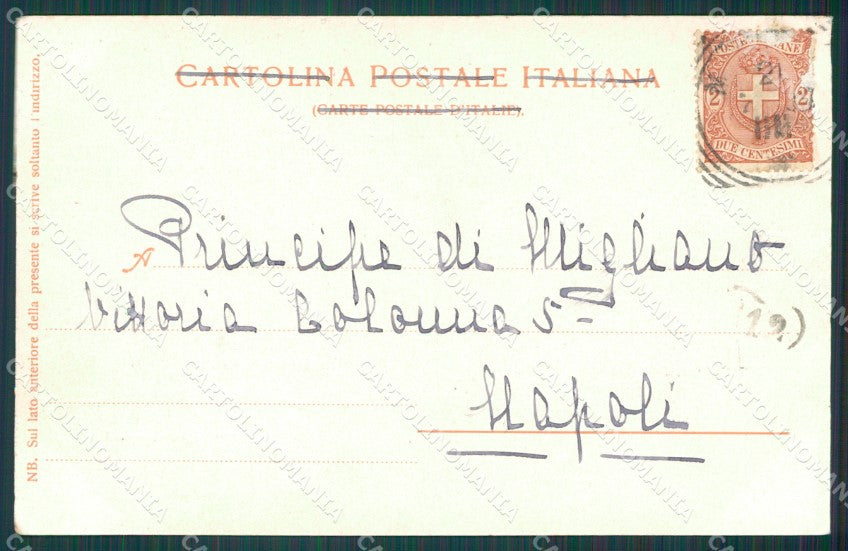 CARTOLINA POSTALE ITALIANA
(CARTE POSTALE D'ITALIE).
POSTE ITALIANE
2 2
DUE CENTESIMI
A Principe di Migliano
Vittoria Colonna 5
Napoli
(12)
NB. Sul lato anteriore della presente si scrive soltanto l'indirizzo.
CARTOLINOMANIA